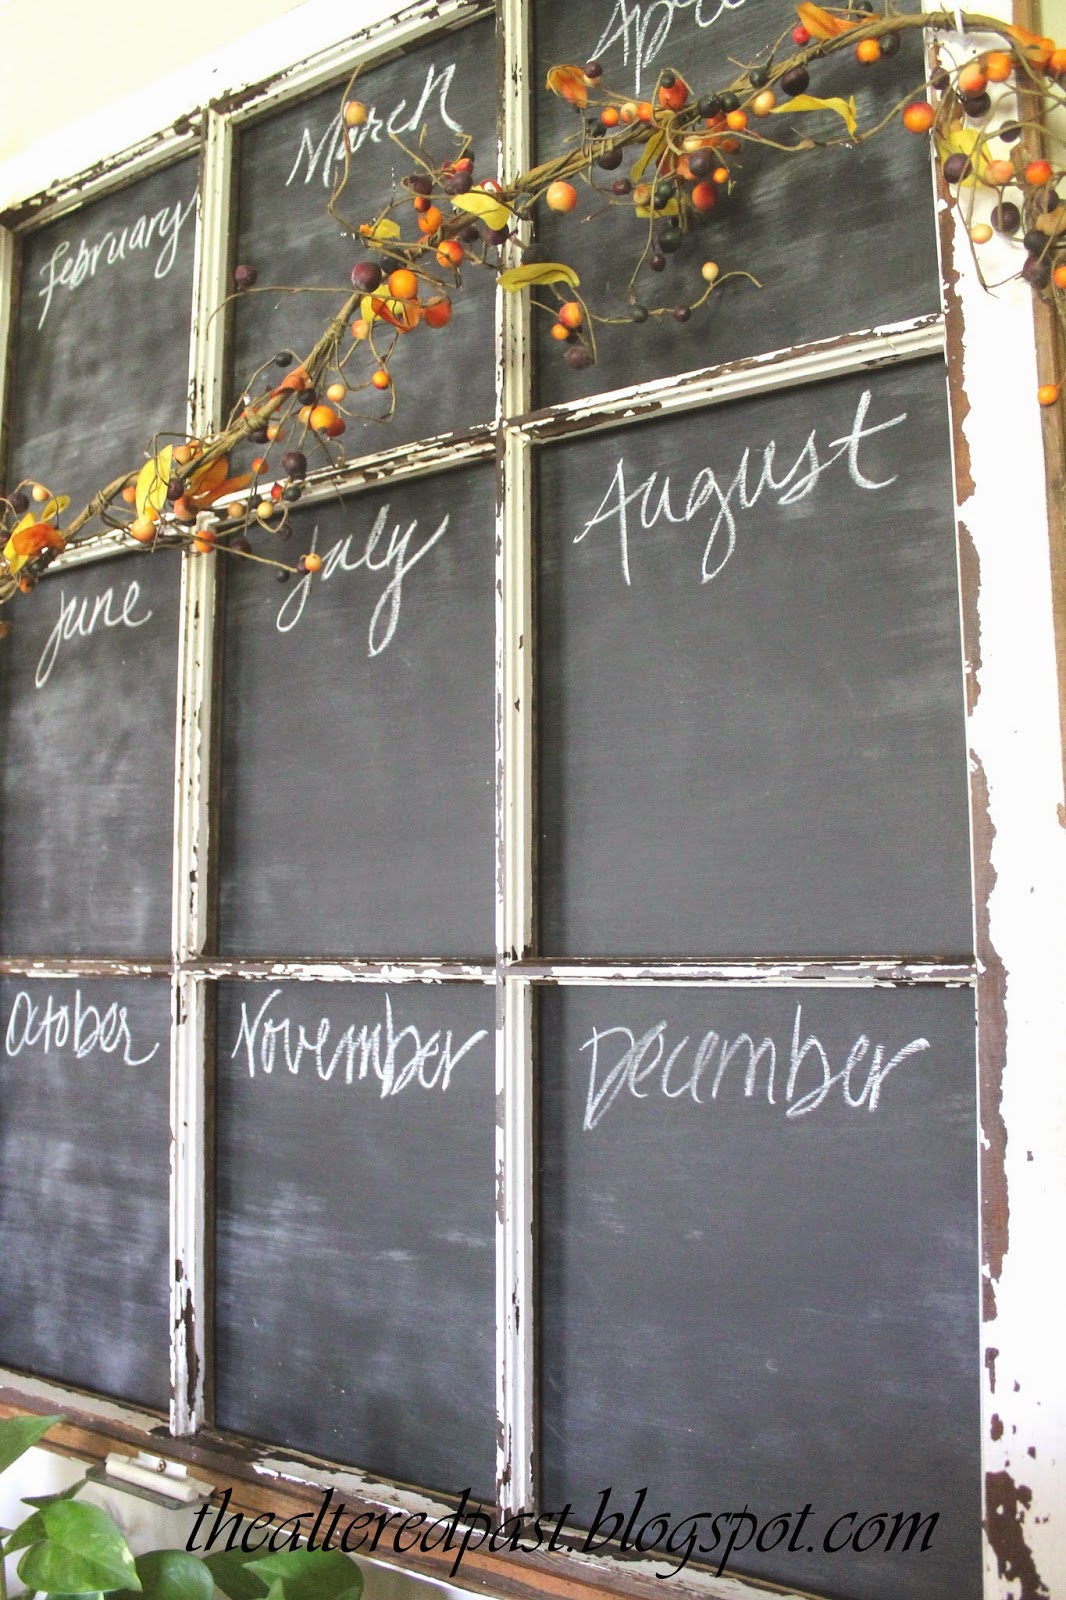 February
March
April
June
July
August
October
November
December
thealteredpast.blogspot.com